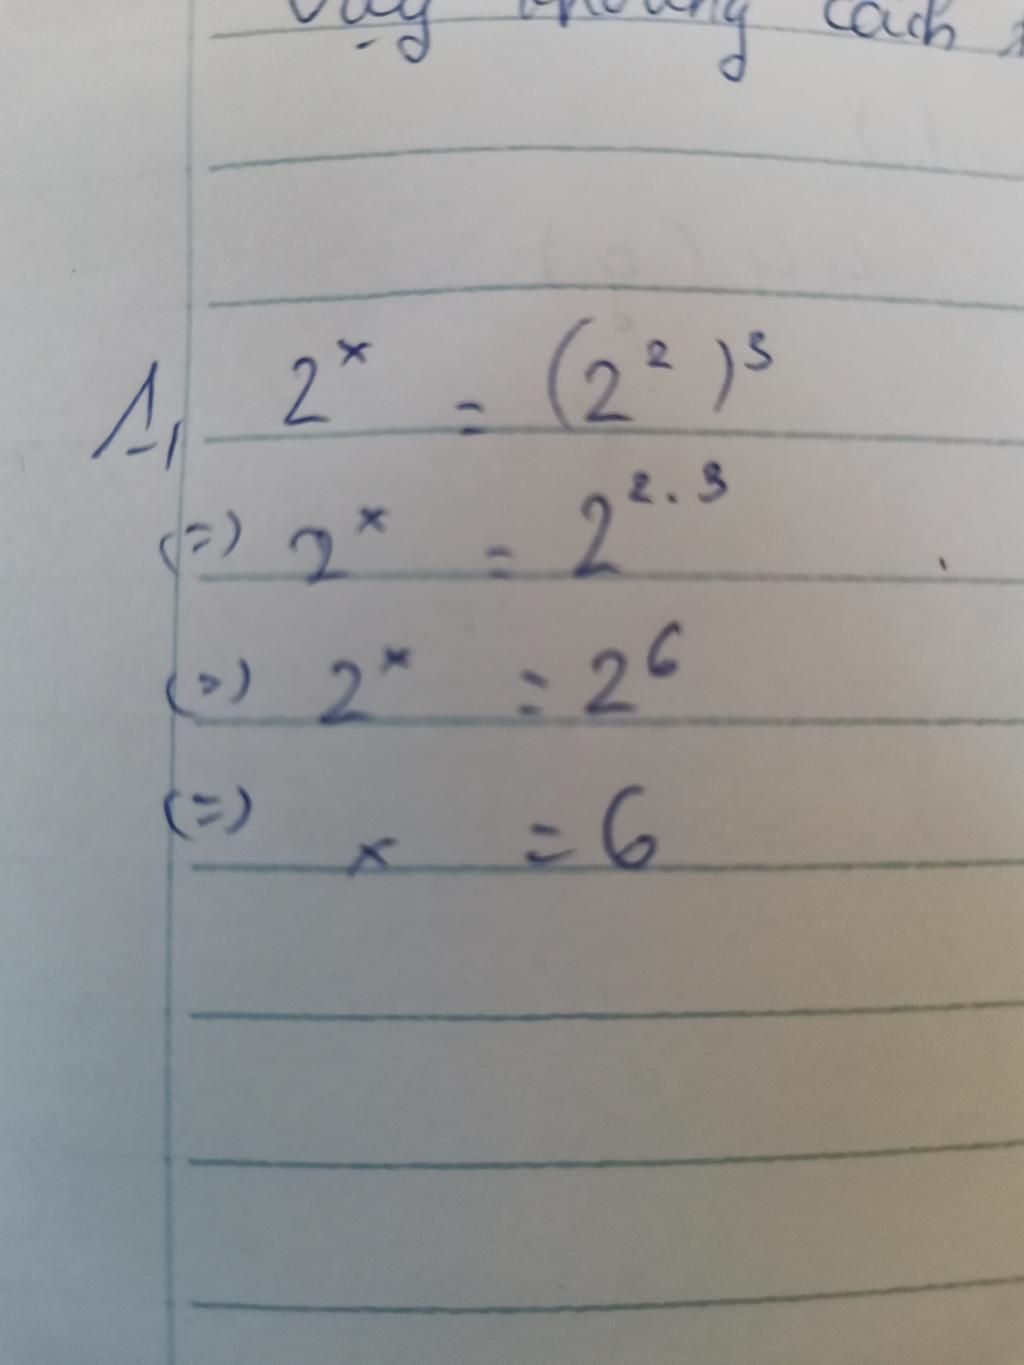 cách
1, 2^x = (2^2)^3
(=) 2^x = 2^{2.3}
(=) 2^x = 2^6
(=) x = 6